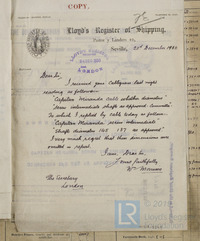 COPY.
Lloyd's Register of Shipping,
Seville, 28th December 19
LONDON
Dear Sir,
I received your Collegian last night
reading as follows:-
"Capitan Miranda cable whether diameter
screw intermediate shafts as approved Committee"
To which I replied by cable today as follows:-
"Capitan Miranda screw intermediate
shafts diameter 165 157 as approved"
I very much regret that these dimensions were
omitted in report.
I am, Dear Sir,
Yours faithfully
Wm.
The Secretary
London